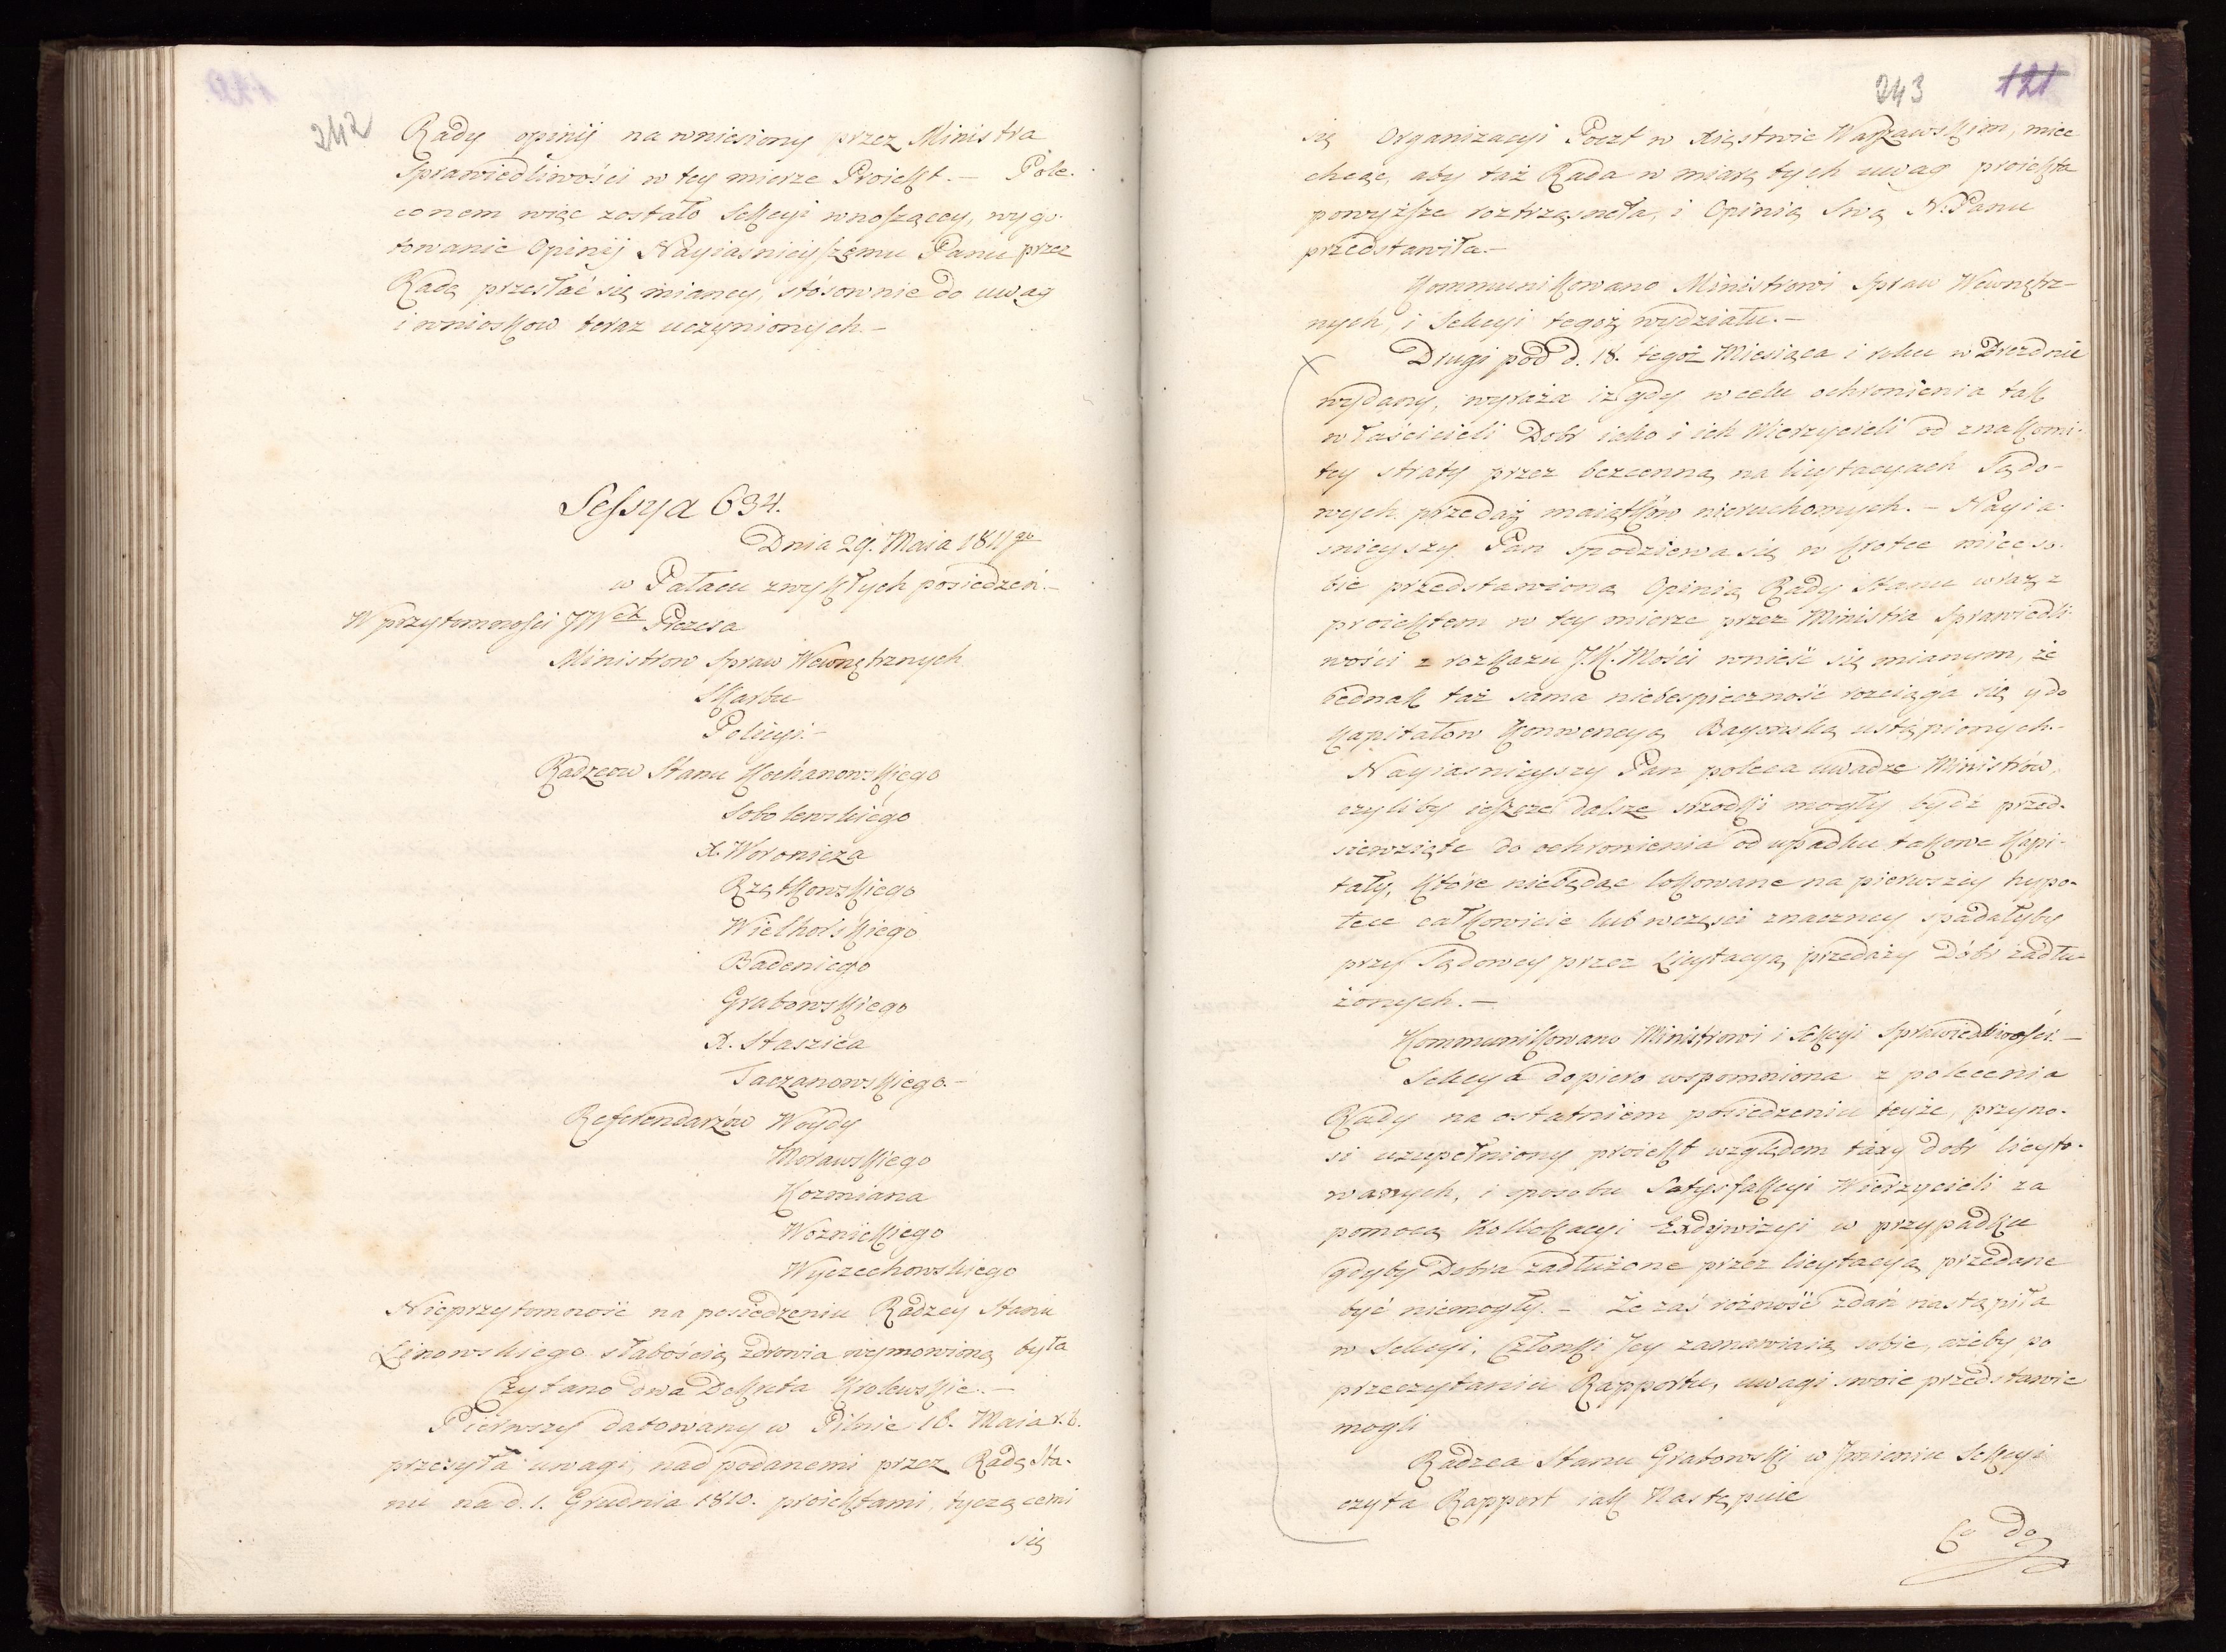 242
Rady opinij na wniesiony przez Ministra
Sprawiedliwości w tey mierze Proiekt. — Pole-
conem więc zostało Sekcyi wnoszącey, wygo-
towanie Opinij Nayiasnieyszemu Panu przez
Radę przesłać się mianey, stósownie do uwag
i wnioskow teraz uczynionych. —
Sessya 634.
Dnia 29. Maia 1811go
w Pałacu zwykłych posiedzeń. —
W przytomnosci JWch Prezesa
Ministrow Spraw Wewnętrznych
Skarbu
Policyi. —
Radzcow Stanu Kochanowskiego
Sobolewskiego
X. Woronicza
Rzętkowskiego
Wielhorskiego
Badeniego
Grabowskiego
X. Staszica
Taczanowskiego. —
Referendarzów Woydy
Morawskiego
Kozmiana
Woznickiego
Wyczechowskiego
Nieprzytomność na posiedzeniu Radzcy Stanu
Linowskiego słabością zdrowia wymowioną była
Czytano dwa Dekreta Krolewskie. —
Pierwszy datowany w Pilnie 16. Maia r. b.
przesyła uwagi, nad podanemi przez Radę Sta-
nu na d. 1. Grudnia 1810. proiektami, tyczącemi
się
243 121
się Organizacyi Poczt w Xięstwie Warszawskim, miec
chcąc, aby taż Rada w miarę tych uwag proiekta
powyższe roztrząsneła, i Opinią swą N. Panu
przedstawiła. —
Kommunikowano Ministrowi Spraw Wewnętrz-
nych, i Sekcyi tegoż wydziału. —
Drugi pod d. 18. tegoż Miesiąca i roku w Dreznie
wydany, wyraża iż gdy w celu ochronienia tak
właścicieli Dobr iako i ich Wierzycieli od znakomi-
tey straty przez bezcenną na licytacyach Sądo-
wych przedaż maiątków nieruchomych. — Nayia-
snieyszy Pan spodziewa się w krotce miec so-
bie przedstawioną Opinią Rady Stanu wraz z
proiektem w tey mierze przez Ministra Sprawiedli-
wości z rozkazu J. K. Mości wnieść się mianym, że
iednak taż sama niebespieczność rozciąga się y do
Kapitałow Konwencyą Bayońską ustąpionych. —
Nayiasnieyszy Pan poleca uwadze Ministrów,
czyliby ieszcze dalsze srzodki mogły bydź przed-
siewzięte do ochronienia od upadku takowe Kapi-
tały, które niebędąc lokowane na pierwszey hypo-
tece całkowicie lub wczęsci znaczney spadałyby
przy Sądowey przez Licytacyą przedaży Dóbr zadłu-
żonych. —
Kommunikowano Ministrowi i Sekcyi Sprawiedliwości. —
Sekcya dopiero wspomniona z polecenia
Rady na ostatniem posiedzeniu teyże, przyno-
si uzupełniony proiekt względem taxy dobr licyto-
wanych, i sposobu Satysfakcyi Wierzycieli za
pomocą Kollokacyi Exdywizyi w przypadku
gdyby Dobra zadłużone przez licytacyą przedane
być niemogły. — Że zaś rożność zdań nastąpiła
w Sekcyi, Członki Jey zamawiaią sobie, ażeby po
przeczytaniu Rapportu, uwagi swoie przedstawic
mogli
Radzca Stanu Grabowski w Jmieniu Sekcyi
czyta Rapport iak Następuie
Co do